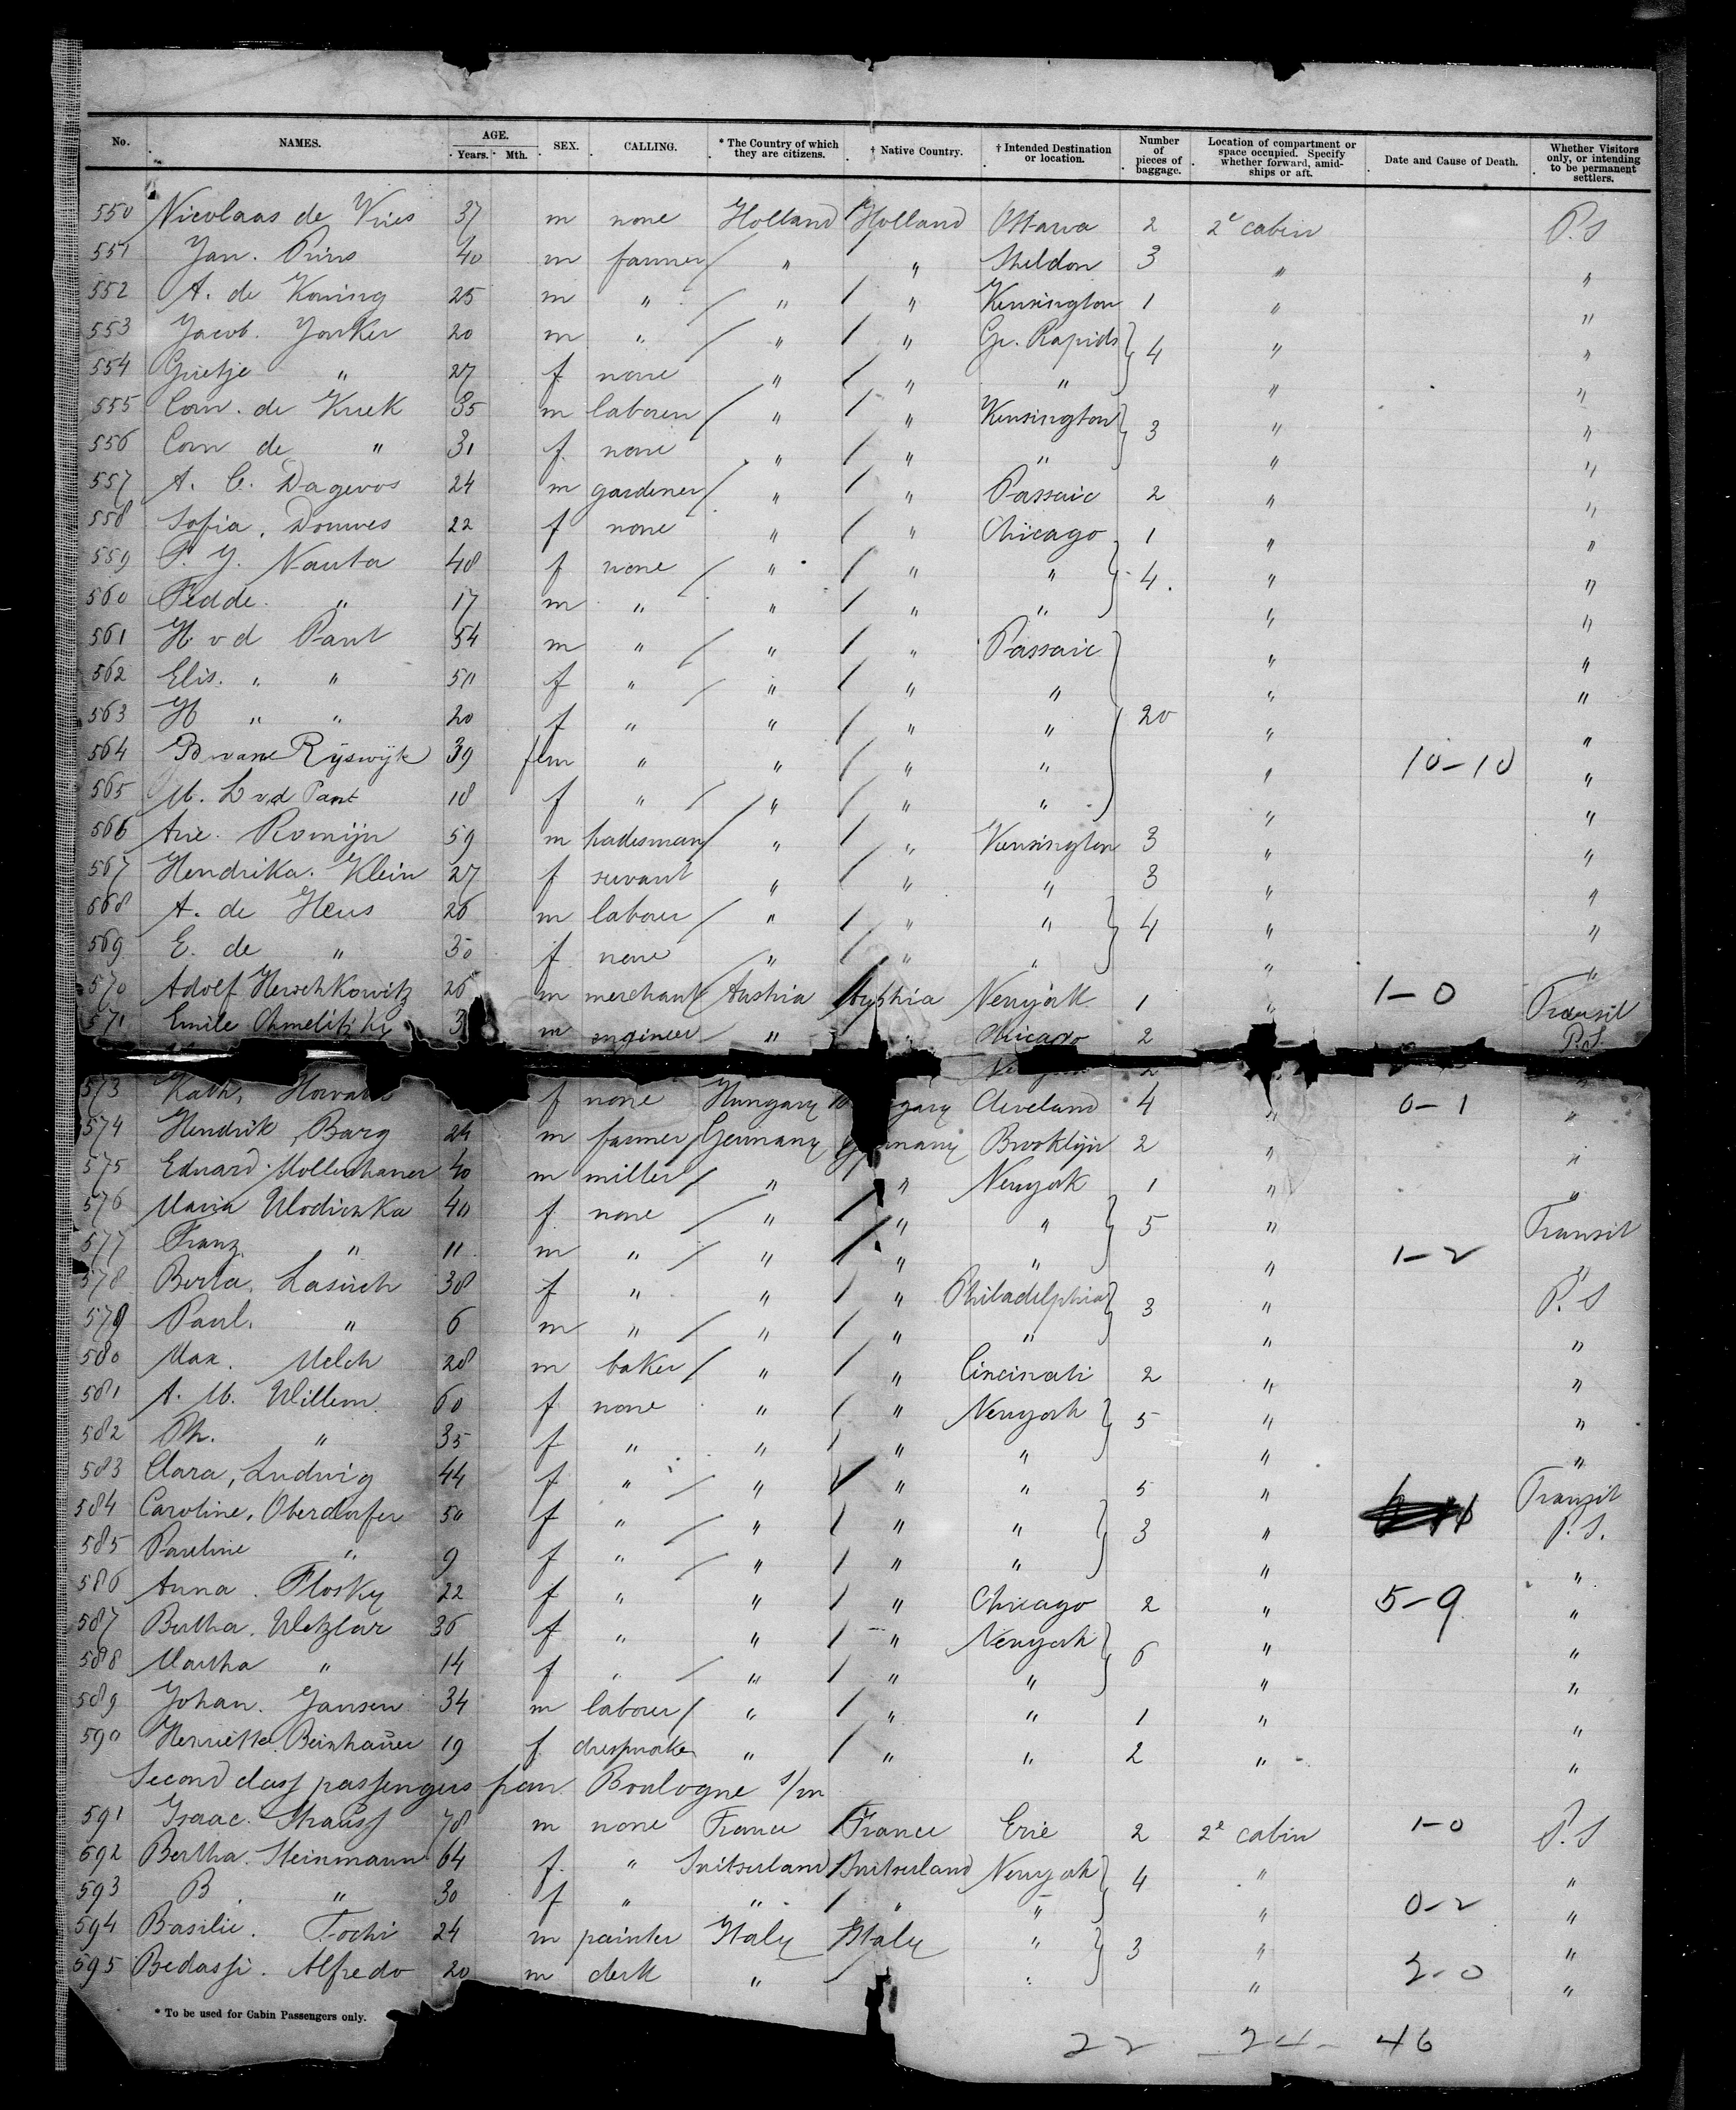 No. NAMES. AGE. Years. Mth. SEX. CALLING. * The Country of which they are citizens. † Native Country. † Intended Destination or location. Number of pieces of baggage. Location of compartment or space occupied. Specify whether forward, amidships or aft. Date and Cause of Death. Whether Visitors only, or intending to be permanent settlers.
550 Nicolaas de Vries 37 m none Holland Holland Ottawa 2 2e cabin P.S
551 Jan. Prins 40 m farmer " " Sheldon 3 " "
552 A. de Koning 25 m " " " Kensington 1 " "
553 Jacob. Jonker 20 m " " " Gr. Rapids 4 " "
554 Grietje " 27 f none " " " " "
555 Corn. de Kriek 35 m laborer " " Kensington 3 " "
556 Corn de " 31 f. none " " " " "
557 A. C. Dagevos 24 m gardener " " Passaic 2 " "
558 Sofia. Douwes 22 f none " " Chicago 1 " "
559 P. Y. Nauta 48 f none " " " 4. " "
560 Fedde. " 17 m " " " " " "
561 H v d Pant 54 m " " " Passaic " "
562 Elis. " " 50 f " " " " " "
563 H " " 20 f " " " " 20 " "
564 B van Ryswijk 39 f m " " " " " 10-10 "
565 M. L vd Pant 18 f " " " " " "
566 Arie. Romijn 59 m tradesman " " Kensington 3 " "
567 Hendrika. Klein 27 f servant " " " 3 " "
568 A. de Heus 26 m laborer " " " 4 " "
569 E. de " 30 f none " " " " "
570 Adolf Herschkowitz 26 m merchant Austria Austria Newyork 1 " 1-0 Transit
571 Emile Chmelitzky 3 m engineer " Chicago 2 P.S.
573 Kath. f none Hungary Cleveland 4 " 0-1 "
574 Hendrik Barg 24 m farmer Germany Germany Brooklyn 2 " "
575 Eduard. Mollenhauer 40 m miller " " Newyork 1 " "
576 Maria Wlodienka 40 f. none " " " 5 " Transit
577 Franz. " 11 m " " " " " 1-2 "
578 Berta. Lasirch 38 f " " " Philadelphia 3 " P. S
579 Paul. " 6 m " " " " " "
580 Max. Melch 28 m baker " " Cincinati 2 " "
581 A. M. Willem 60 f none " " Newyork 5 " "
582 Ph. " 35 f " " " " " "
583 Clara, Ludwig 44 f " " " " 5 " Transit
584 Caroline, Oberdorfer 50 f " " " " 3 " P. S.
585 Pauline " 9 f " " " " " "
586 Anna. Flosky 22 f " " " Chicago 2 " 5-9 "
587 Bertha. Wetzlar 36 f " " " Newyork 6 " "
588 Martha " 14 f " " " " " "
589 Johan. Jansen 34 m laborer " " " 1 " "
590 Henriette Beinhauer 19 f. dressmaker " " " 2 " "
Second class passengers from Boulogne s/m
591 Isaac. Strauss 78 m none France France Erie 2 2e cabin 1-0 P.S
592 Bertha. Steinmann 64 f. " Switserland Switserland Newyork 4 " "
593 B. " 30 f " " " " " 0-2 "
594 Basilie. Fochi 24 m painter Italy Italy " 3 " "
595 Bedassi. Alfredo 20 m clerk " " " 2-0 "
* To be used for Cabin Passengers only.
22 - 24 - 46